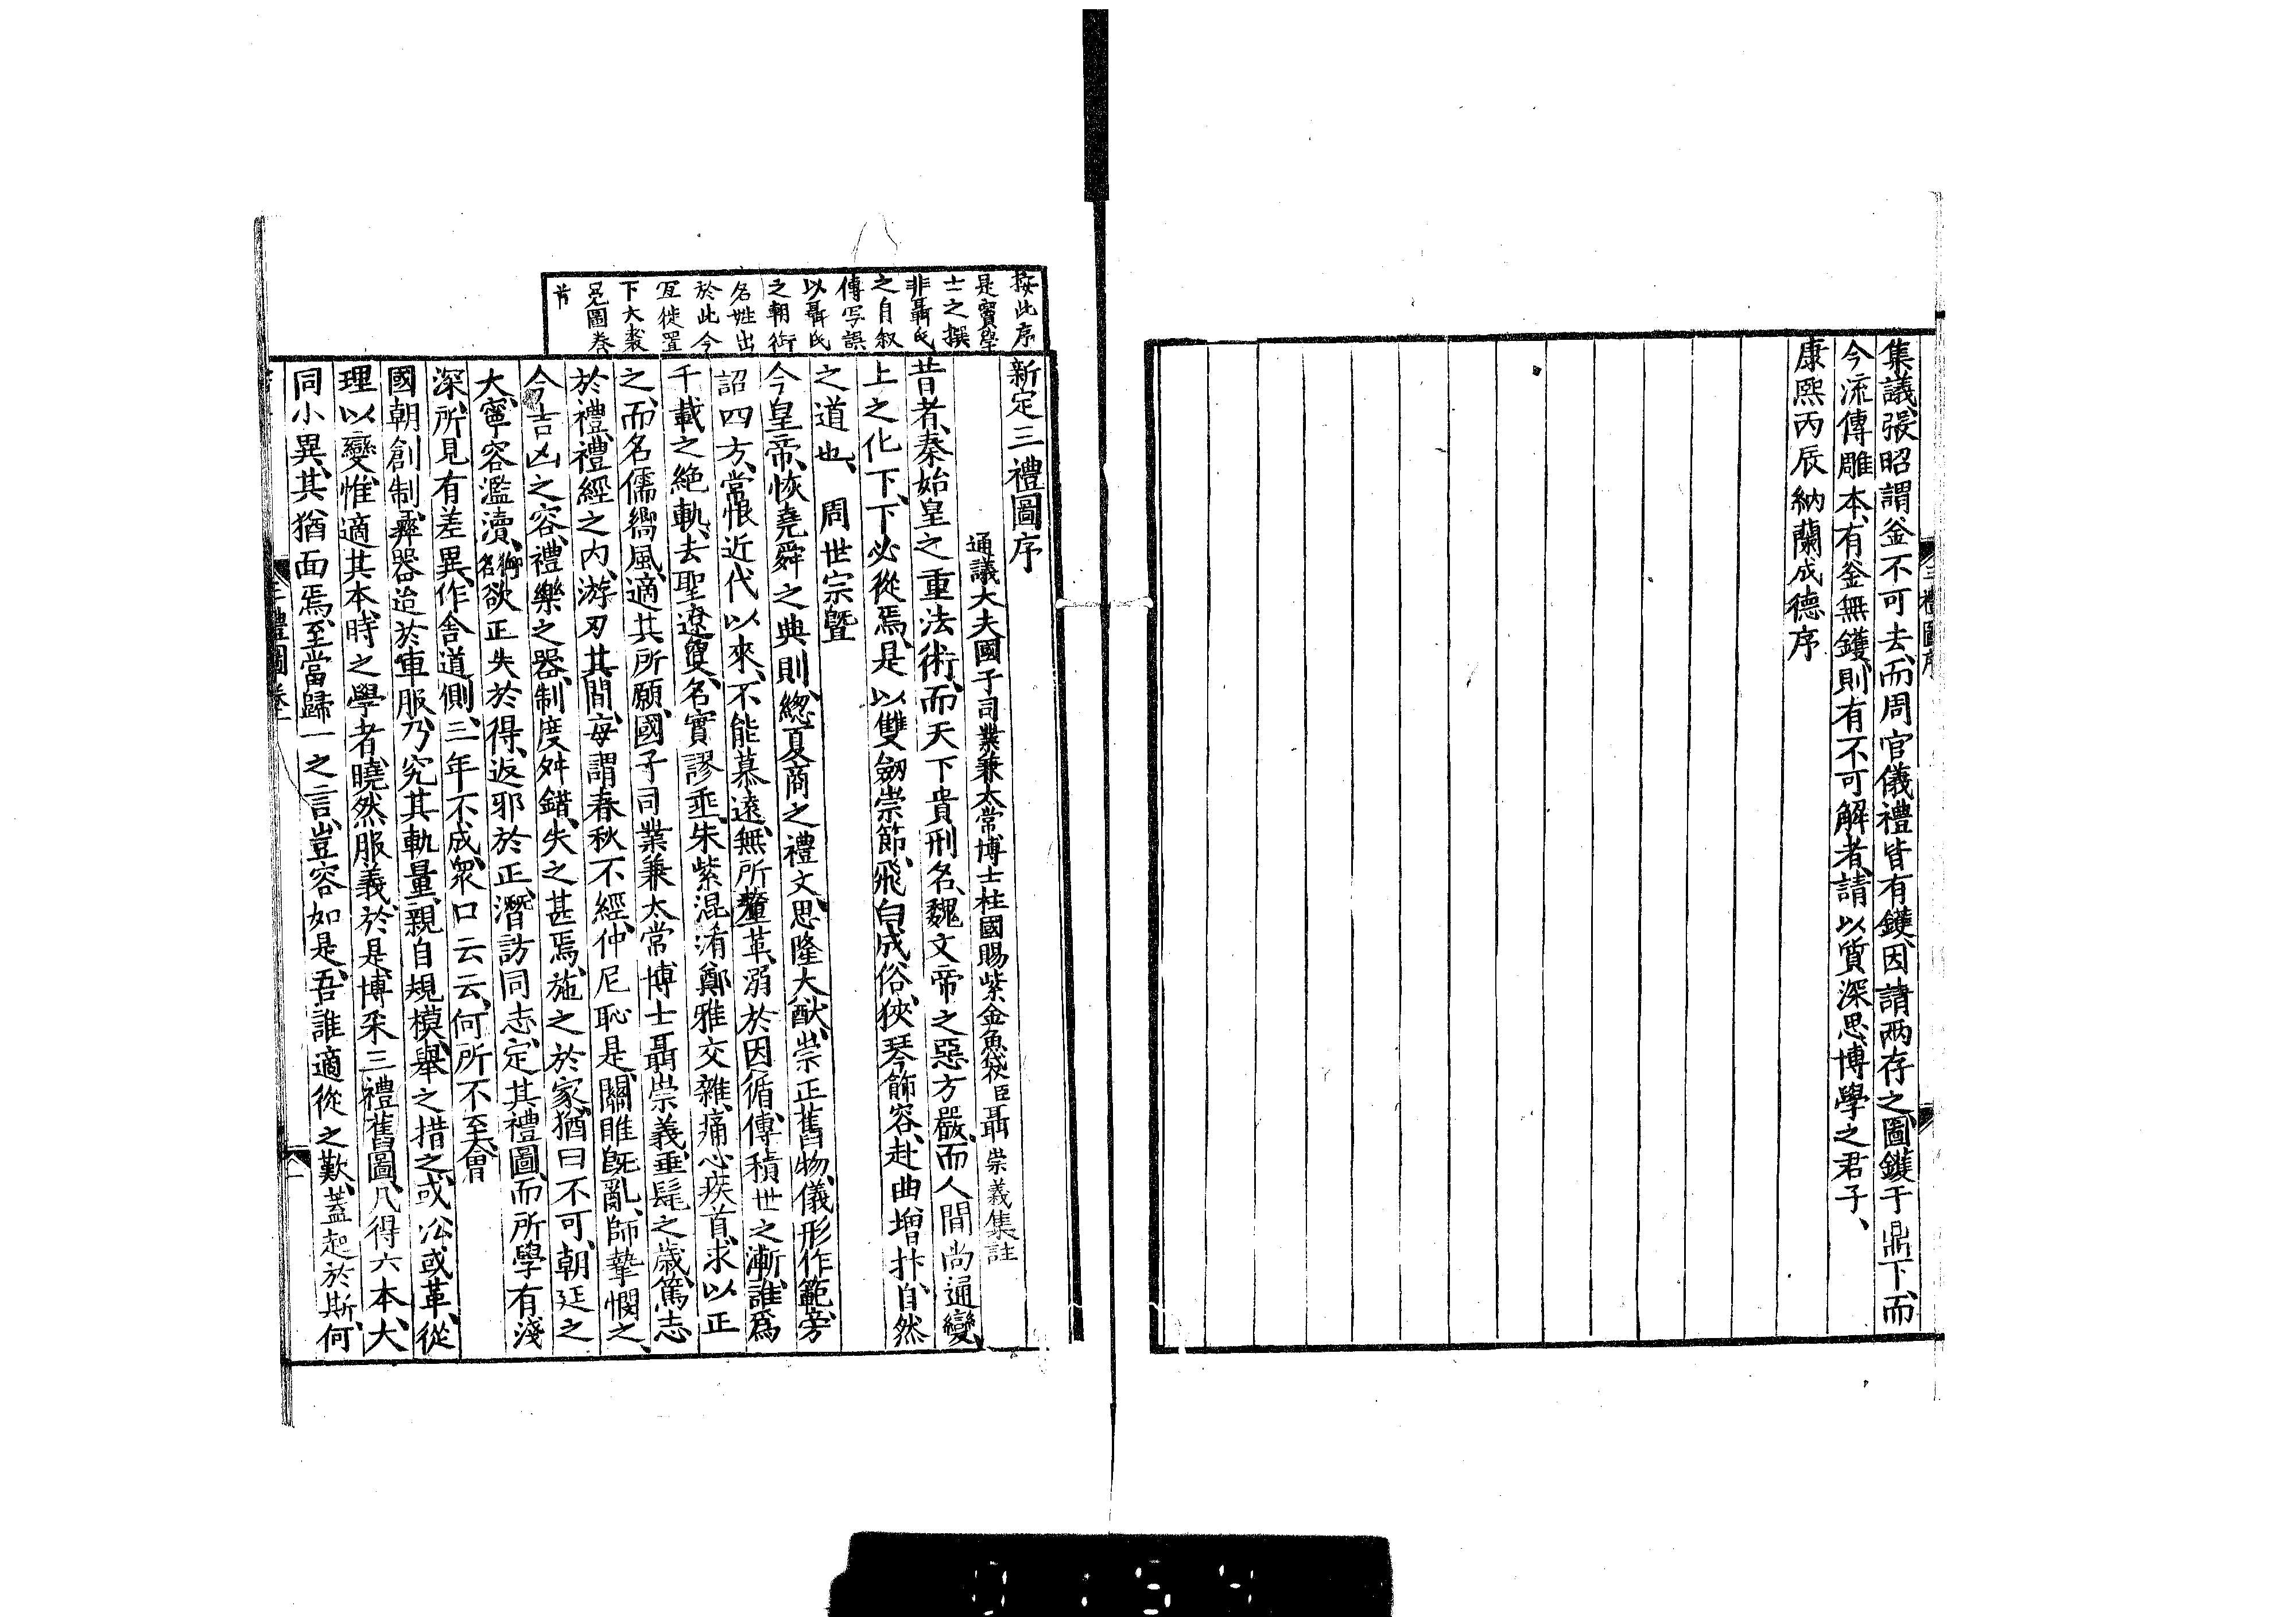 集議張昭謂釜不可去、而周官儀禮皆有鑊、因請兩存之、圖鑊于鼎下、而
今流傳雕本、有釜無鑊、則有不可解者、請以質深思博學之君子、
康熙丙辰納蘭成德序
三禮圖序
按此序
是竇學
士之撰
非聶氏
之自叙
傳写誤
以聶氏
之朝銜
名姓出
於此今
宜徙置
下大裘
冕圖卷
首
新定三禮圖序
通議大夫國子司業兼太常博士柱國賜紫金魚袋臣聶崇義集註
昔者、秦始皇之重法術、而天下貴刑名、魏文帝之惡方嚴、而人間尚通變、
上之化下、下必從焉、是以雙劒崇節、飛白成俗、挾琴飾容、赴曲增抃、自然
之道也、周世宗曁
今皇帝、恢堯舜之典則、緫夏商之禮文、思隆大猷、崇正舊物、儀形作範、旁
詔四方、常恨近代以來、不能慕遠、無所釐革、溺於因循、傳積世之漸、誰爲
千載之絶軌、去聖遼夐、名實謬乖、朱紫混淆、鄭雅交雜、痛心疾首、求以正
之、而名儒嚮風、適其所願、國子司業兼太常博士聶崇義、垂髦之歳、篤志
於禮、禮經之内、游刃其間、每謂春秋不經、仲尼恥是、關雎旣亂、師摯憫之、
今吉凶之容、禮樂之器、制度舛錯、失之甚焉、施之於家、猶曰不可、朝廷之
大、寧容濫瀆、欲正失於得、返邪於正、潛訪同志、定其禮圖、而所學有淺
深、所見有差異、作舎道側、三年不成、衆口云云、何所不至、會
國朝創制、彝器迨於車服、乃究其軌量、親自規模、舉之措之、或沿或革、從
理以變、惟適其本、時之學者、曉然服義、於是博采三禮舊圖、凡得六本、大
同小異、其猶面焉、至當歸一之言、豈容如是、吾誰適從之歎、蓋起於斯、何
三禮圖卷一
一
0154